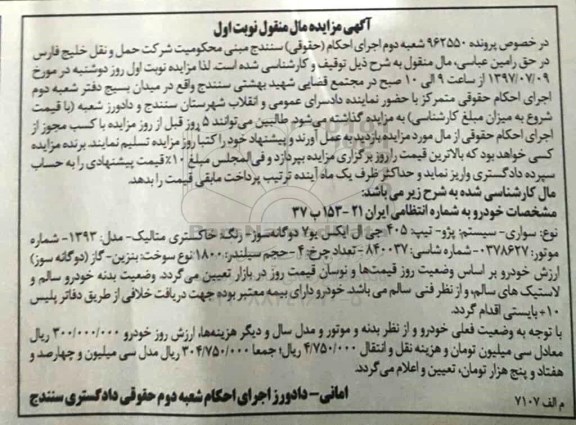 آگهی مزایده مال منقول نوبت اول
در خصوص پرونده ۹۶۲۵۵۰ شعبه دوم اجرای احکام (حقوقی) سنندج مبنی محکومیت شرکت حمل و نقل خلیج فارس
در حق رامین عباسی، مال منقول به شرح ذیل توقیف و کارشناسی شده است. لذا مزایده نوبت اول روز دوشنبه در مورخ
۱۳۹۷/۰۷/۰۹ از ساعت ۹ الی ۱۰ صبح در مجتمع قضایی شهید بهشتی سنندج واقع در میدان بسیج دفتر شعبه دوم
اجرای احکام حقوقی متمرکز با حضور نماینده دادسرای عمومی و انقلاب شهرستان سنندج و دادورز شعبه (با قیمت
شروع به میزان مبلغ کارشناسی) به مزایده گذاشته می‌شود. طالبین می‌توانند ۵ روز قبل از روز مزایده با کسب مجوز از
اجرای احکام حقوقی از مال مورد مزایده بازدید به عمل آورند و پیشنهاد خود را کتبا روز مزایده تسلیم نمایند. برنده مزایده
کسی خواهد بود که بالاترین قیمت را روز برگزاری مزایده بپردازد و فی‌المجلس مبلغ ۱۰٪ قیمت پیشنهادی را به حساب
سپرده دادگستری واریز نماید و حداکثر ظرف یک ماه آینده ترتیب پرداخت مابقی قیمت را بدهد.
مال کارشناسی شده به شرح زیر می‌باشد:
مشخصات خودرو به شماره انتظامی ایران ۲۱ - ۱۵۳ ب ۳۷
نوع: سواری- سیستم: پژو- تیپ: ۴۰۵ جی ال ایکس یو۷ دوگانه‌سوز- رنگ: خاکستری متالیک- مدل: ۱۳۹۳- شماره
موتور: ۰۳۷۸۶۲۷- شماره شاسی: ۸۴۰۰۳۷- تعداد چرخ: ۴ - حجم سیلندر: ۱۸۰۰ نوع سوخت: بنزین- گاز (دوگانه سوز)
ارزش خودرو بر اساس وضعیت روز قیمت‌ها و نوسان قیمت روز در بازار تعیین می‌گردد. وضعیت بدنه خودرو سالم و
لاستیک های سالم، و از نظر فنی سالم می‌باشد. خودرو دارای بیمه معتبر بوده جهت دریافت خلافی از طریق دفاتر پلیس
+۱۰ بایستی اقدام گردد.
با توجه به وضعیت فعلی خودرو و از نظر بدنه و موتور و مدل سال و دیگر هزینه‌ها، ارزش روز خودرو ۳۰۰/۰۰۰/۰۰۰ ریال
معادل سی میلیون تومان و هزینه نقل و انتقال ۴/۷۵۰/۰۰۰ ریال؛ جمعا ۳۰۴/۷۵۰/۰۰۰ ریال مدل سی میلیون و چهارصد و
هفتاد و پنج هزار تومان، تعیین و اعلام می‌گردد.
امانی- دادورز اجرای احکام شعبه دوم حقوقی دادگستری سنندج
م الف ۷۱۰۷